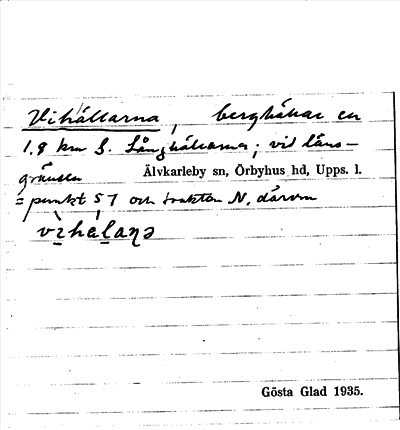 Vihällarna, berghällar en
1.8 km S. Långhällarna; vid läns-
gränsen Älvkarleby sn, Örbyhus hd, Upps. l.
= punkt 57 och trakten N. därom
vìhä̀laṇə
Gösta Glad 1935.